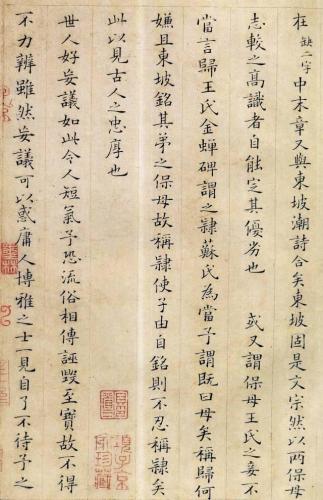 枉缺一字中末章又與東坡潮詩合矣東坡固是文宗然以兩保母
志較之高識者自能定其優劣也　或又謂保母王氏之妾不
當言歸王氏金蟬碑謂之隸蘇氏為當予謂既曰母矣稱歸何
嫌且東坡銘其弟之保母故稱隸使子由自銘則不忍稱隸矣
此以見古人之忠厚也
世人好妄議如此令人短氣予恐流俗相傳誣毀至寶故不得
不力辨雖然妄議可以惑庸人博雅之士一見自了不待予之